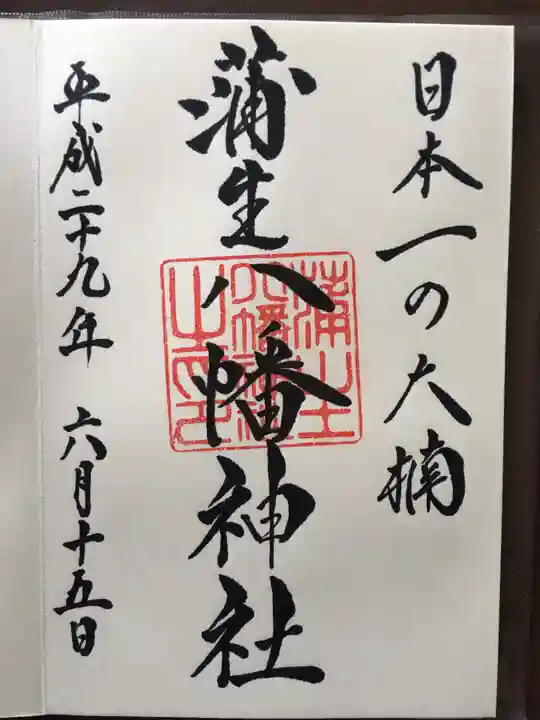 日本一の大楠
蒲生八幡神社
蒲生八幡神社之印
平成二十九年 六月十五日